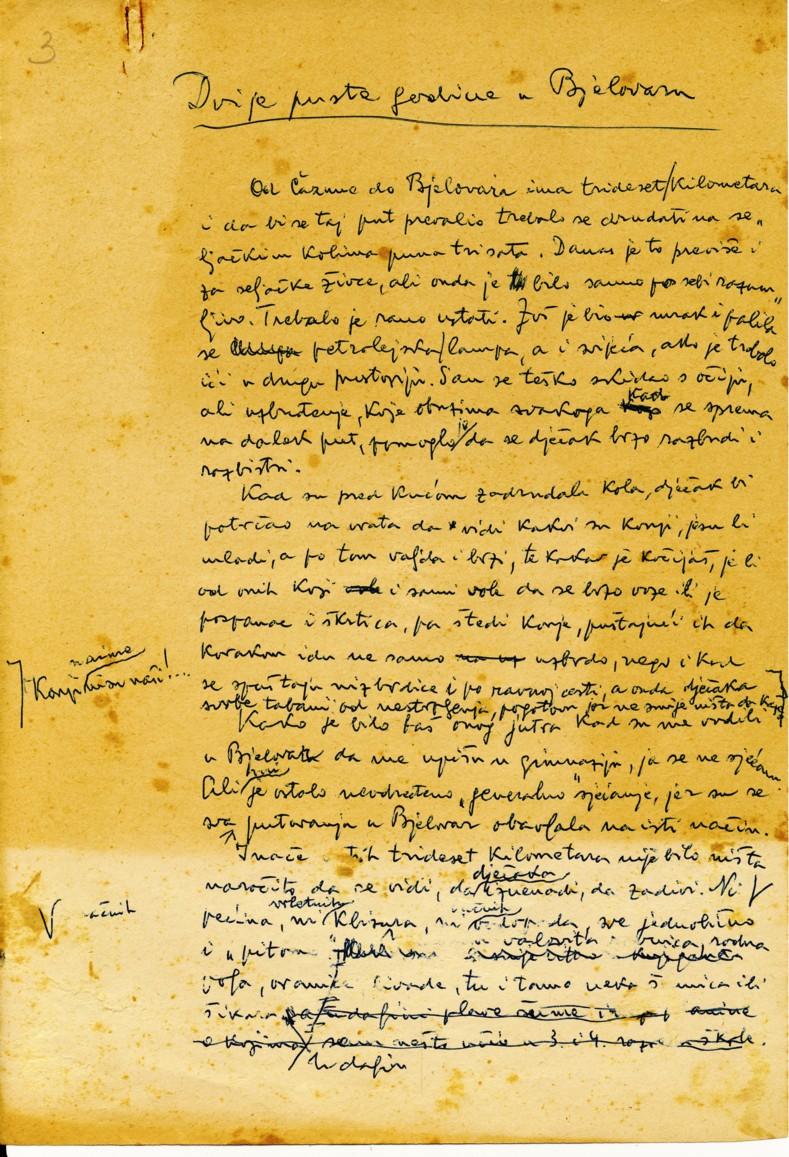 3
Dvije puste godine u Bjelovaru
Od Čazme do Bjelovara ima trideset/kilometara
i da bi se taj put prevalio trebalo se drndati na se„
ljačkim kolima puna tri sata. Danas je to previše i
za seljačke živce, ali onda je bilo samo po sebi razum„
ljivo. Trebalo je rano ustati. Još je bio mrak i palila
se petrolejska/lampa, a i svijeća, ako je trebalo
ići u drugu prostoriju. San se teško skidao s očiju,
ali uzbuđenje, koje obuzima svakoga kad se sprema
na dalek put, pomoglo je da se dječak brzo razbudi i
razbistri.
Kad su pred kućom zadrndala kola, dječak bi
potrčao na vrata da vidi kakvi su konji, jesu li
mladi, a po tom valjda i brzi, te kakav je kočijaš, je li
od onih koji i sami vole da se brzo voze ili je
pospanac i škrtica, pa štedi konje, puštajući ih da
korakom idu ne samo uzbrdo, nego i kad
Konji naime nisu naši!...
se spuštaju nizbrdice i po ravnoj cesti, a onda dječaka
svrbe tabani od nestrpljenja, pogotovu jer ne smije ništa da kaže
Kako je bilo baš onog jutra kad su me vodili
u Bjelovar da me upišu u gimnaziju, ja se ne sjećam.
Ali je ostalo neodređeno „generalno" sjećanje, jer su se
sva putovanja u Bjelovar obavljala na isti način.
Inače o tih trideset kilometara nije bilo ništa
naročito da se vidi, da dječaka iznenadi, da zadivi. Ni
pećina, ni vrletnih klisura, ni sve jednolično
i „pitom valovita rodna
polja, oranice livade, tu i tamo neka š mica ili
šikara
a kojima sam nešto učio u 3. i 4. škole.